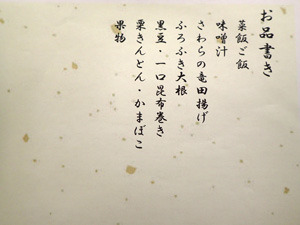 お品書き
菜飯ご飯
味噌汁
さわらの竜田揚げ
ふろふき大根
黒豆・一口昆布巻き
栗きんとん・かまぼこ
果物